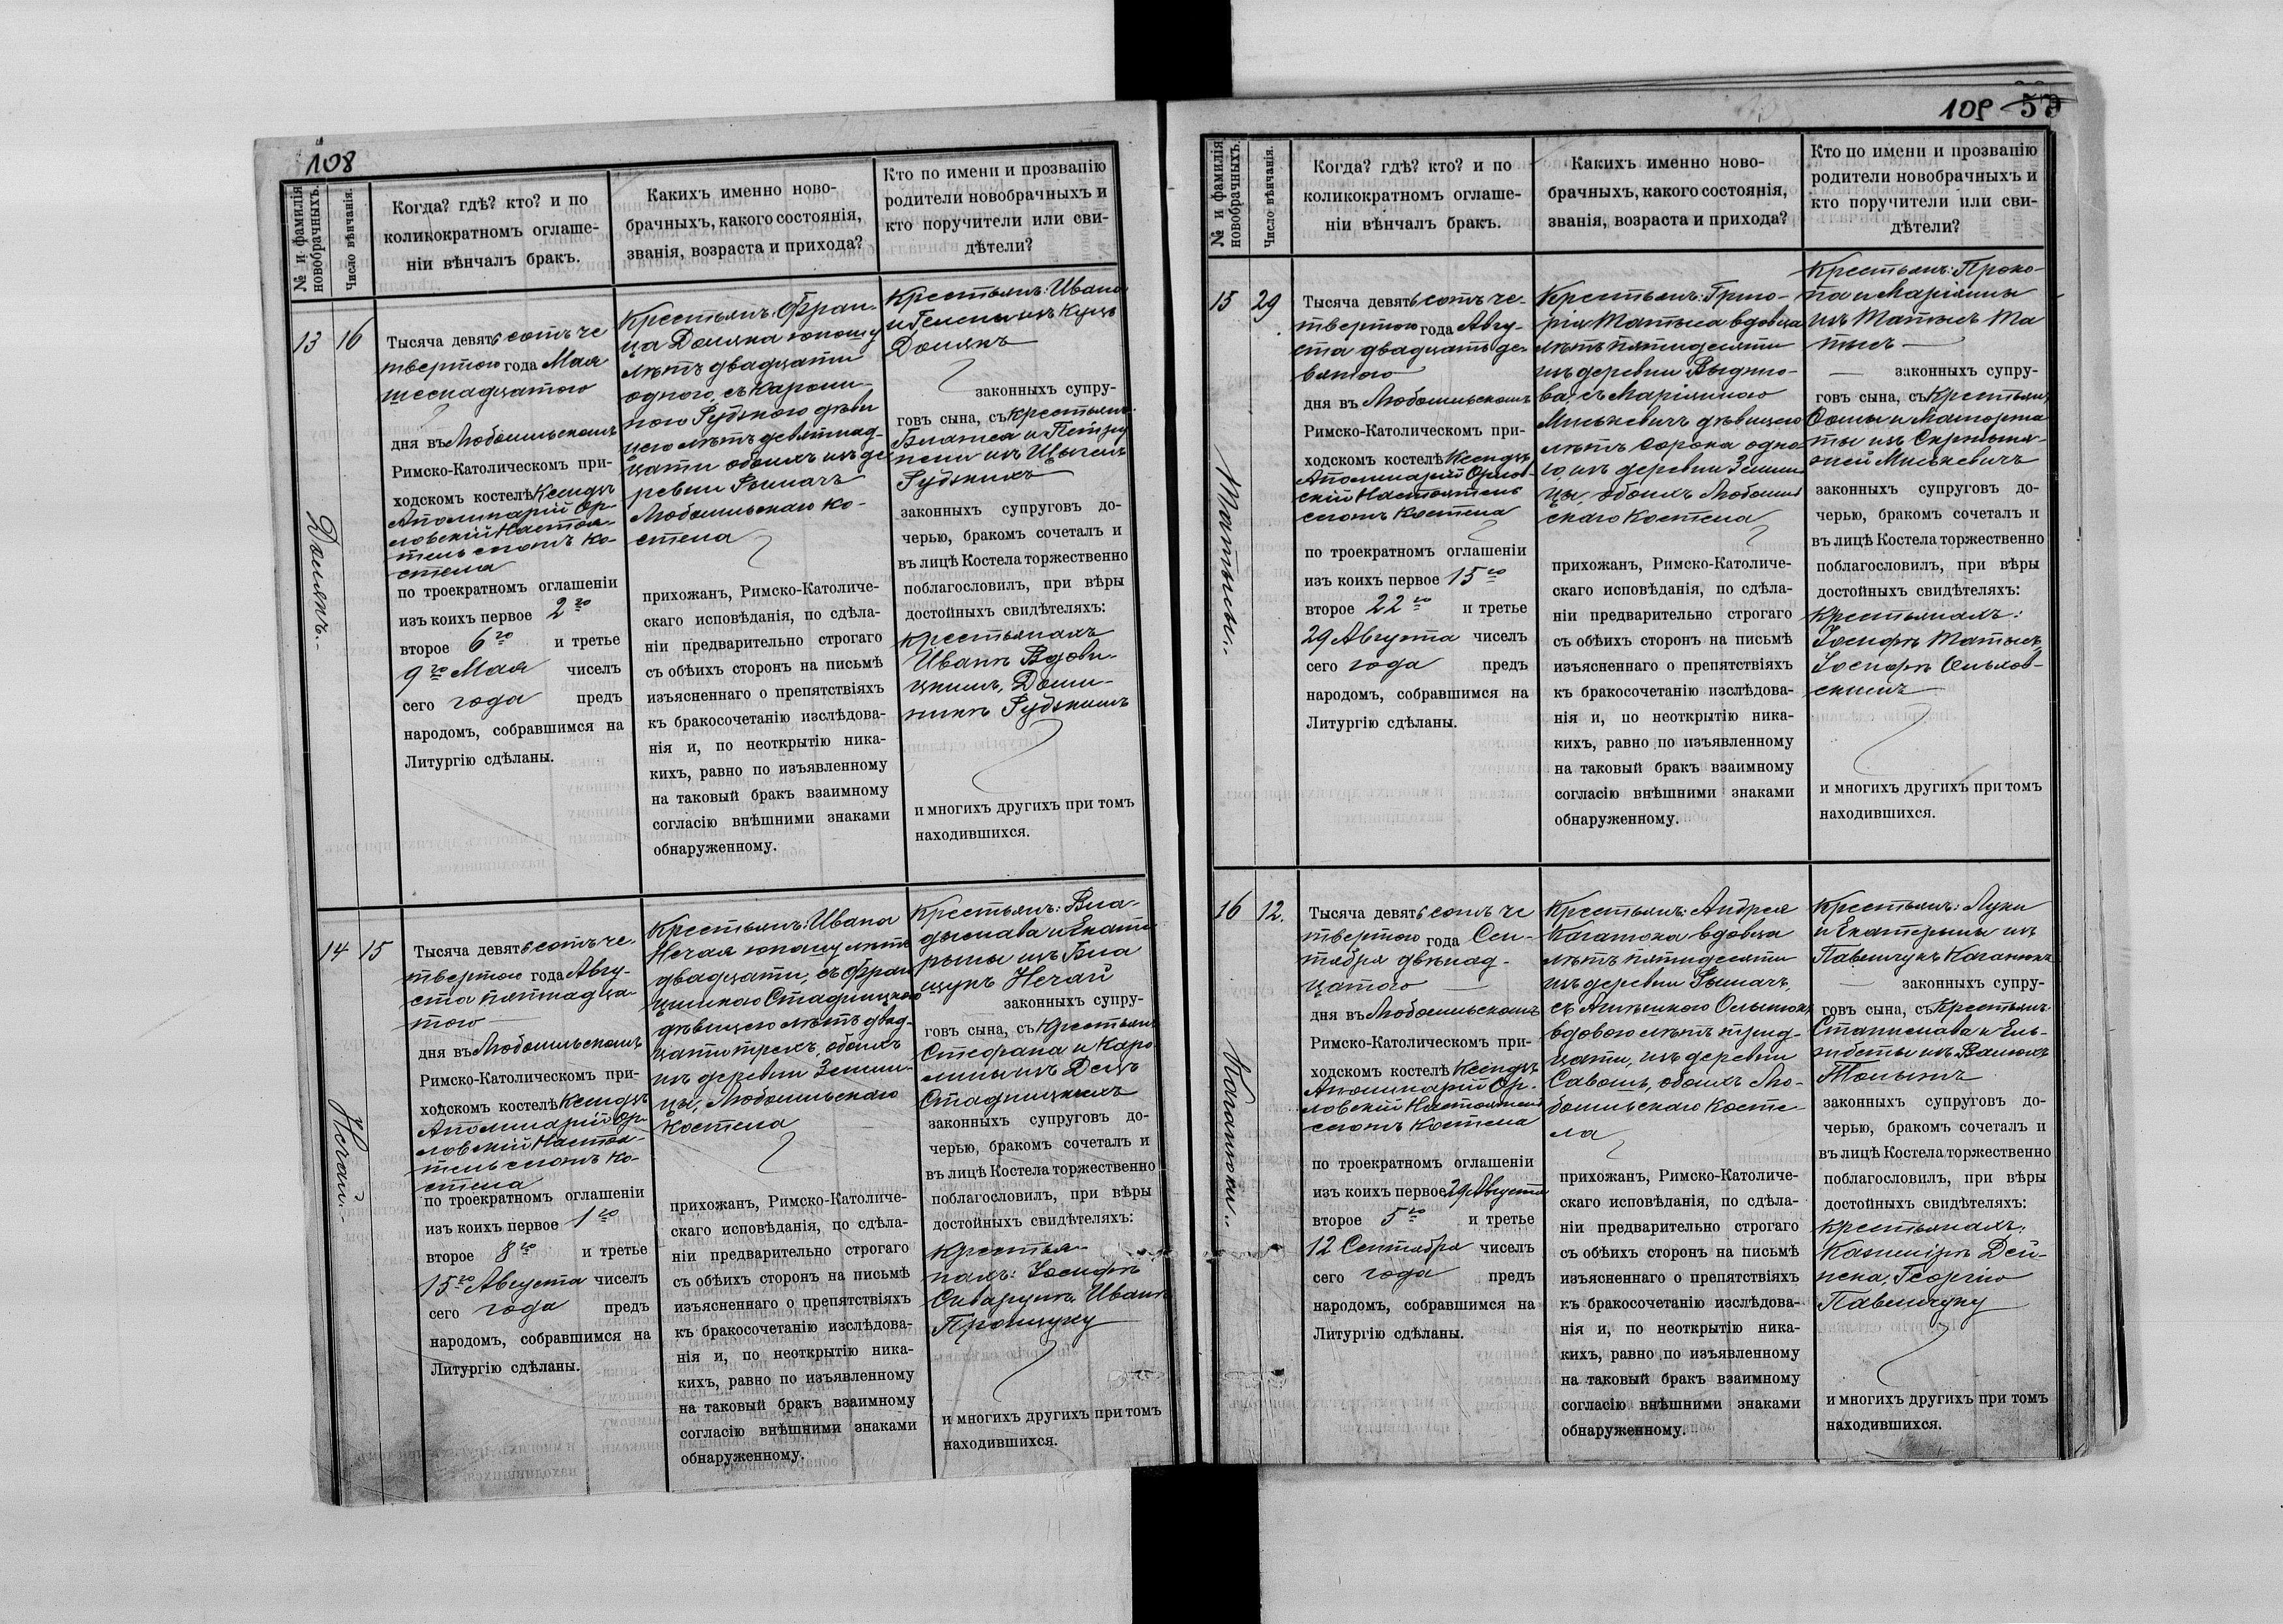 108
№ и фамилія новобрачныхъ.
Число вѣнчанія.
Когда? гдѣ? кто? и по
коликократномъ оглаше-
ніи вѣнчалъ бракъ.
Какихъ именно ново-
брачныхъ, какого состоянія,
званія, возраста и прихода?
Кто по имени и прозванію
родители новобрачныхъ и
кто поручители или сви-
дѣтели?
13
16
Домякъ.
Тысяча девятьсотъ че
твертого года Мая
шеснадцатого
дня въ Любомльскомъ
Римско-Католическомъ при-
ходскомъ костелѣ Ксендзъ
Аполинарій Ор-
ловскій Настоя-
тель сего Ко-
стела
по троекратномъ оглашеніи
изъ коихъ первое 2го
второе 6го и третье
9го Мая чиселъ
сего года предъ
народомъ, собравшимся на
Литургію сдѣланы.
Крестьянъ: Фран-
ца Домяка юношу
лѣтъ двадцати
одного, съ Кароли-
ною Рудзкою дѣви
цею лѣтъ девятнад-
цати обоихъ изъ де
ревни Рымачъ
Любомльскаго Ко-
стела
прихожанъ, Римско-Католиче-
скаго исповѣданія, по сдѣла-
ніи предварительно строгаго
съ обѣихъ сторонъ на письмѣ
изъясненнаго о препятствіяхъ
къ бракосочетанію изслѣдова-
нія и, по неоткрытію ника-
кихъ, равно по изъявленному
на таковый бракъ взаимному
согласію внѣшними знаками
обнаруженному.
Крестьянъ: Ивана
и Гелены изъ
Домякъ
законныхъ супру-
говъ сына, съ Крестьянъ
и
изъ
Рудзкихъ
законныхъ супруговъ до-
черью, бракомъ сочеталъ и
въ лицѣ Костела торжественно
поблагословилъ, при вѣры
достойныхъ свидѣтеляхъ:
Крестьянахъ
Иванѣ Вдови-
цкимъ, Доми-
никѣ Рудзкимъ
и многихъ другихъ при томъ
находившихся.
14
15
Нечай.
Тысяча девятьсотъ че
твертого года Авгу-
ста пятнадца-
того
дня въ Любомльскомъ
Римско-Католическомъ при-
ходскомъ костелѣ Ксендзъ
Аполинарій Ор-
ловскій Настоя-
тель сего Ко-
стела
по троекратномъ оглашеніи
изъ коихъ первое 1го
второе 8го и третье
15го Августа чиселъ
сего года предъ
народомъ, собравшимся на
Литургію сдѣланы.
Крестьянъ: Ивана
Нечая юношу лѣтъ
двадцати, съ Фран
цишкою Стадницкою
дѣвицею лѣтъ двад-
цати трехъ, обоихъ
изъ деревни Земли-
цы, Любомльскаго
Костела
прихожанъ, Римско-Католиче-
скаго исповѣданія, по сдѣла-
ніи предварительно строгаго
съ обѣихъ сторонъ на письмѣ
изъясненнаго о препятствіяхъ
къ бракосочетанію изслѣдова-
нія и, по неоткрытію ника-
кихъ, равно по изъявленному
на таковый бракъ взаимному
согласію внѣшними знаками
обнаруженному.
Крестьянъ: Вла-
дыслава и Екате
рины изъ
Нечай
законныхъ супру-
говъ сына, съ Крестьянъ
Стефана и Каро
лины изъ
Стадницкихъ
законныхъ супруговъ до-
черью, бракомъ сочеталъ и
въ лицѣ Костела торжественно
поблагословилъ, при вѣры
достойныхъ свидѣтеляхъ:
Крестья-
нахъ: Іосифѣ
Иванѣ
и многихъ другихъ при томъ
находившихся.
109 59
№ и фамилія новобрачныхъ.
Число вѣнчанія.
Когда? гдѣ? кто? и по
коликократномъ оглаше-
ніи вѣнчалъ бракъ.
Какихъ именно ново-
брачныхъ, какого состоянія,
званія, возраста и прихода?
Кто по имени и прозванію
родители новобрачныхъ и
кто поручители или сви-
дѣтели?
15
29
Матысы.
Тысяча девятьсотъ че-
твертого года Авгу-
ста двадцать де-
вятого
дня въ Любомльскомъ
Римско-Католическомъ при-
ходскомъ костелѣ Ксендзъ
Аполинарій Орлов-
скій Настоятель
сего Костела
по троекратномъ оглашеніи
изъ коихъ первое 15го
второе 22го и третье
29 Августа чиселъ
сего года предъ
народомъ, собравшимся на
Литургію сдѣланы.
Крестьянъ: Григо-
рія Матыса вдовца
лѣтъ пятидесяти
изъ деревни
съ Маріянною
Миськевичъ дѣвицею
лѣтъ сорока одно-
го, изъ деревни Земли
цы, обоихъ Любомль
скаго Костела
прихожанъ, Римско-Католиче-
скаго исповѣданія, по сдѣла-
ніи предварительно строгаго
съ обѣихъ сторонъ на письмѣ
изъясненнаго о препятствіяхъ
къ бракосочетанію изслѣдова-
нія и, по неоткрытію ника-
кихъ, равно по изъявленному
на таковый бракъ взаимному
согласію внѣшними знаками
обнаруженному.
Крестьянъ: Проко-
па и Маріянны
изъ Матысъ Ма
тысъ
законныхъ супру-
говъ сына, съ Крестьянъ
Фомы и Малгоржа
ты изъ
Миськевичъ
законныхъ супруговъ до-
черью, бракомъ сочеталъ и
въ лицѣ Костела торжественно
поблагословилъ, при вѣры
достойныхъ свидѣтеляхъ:
Крестьянахъ:
Іосифѣ Матысъ,
Іосифѣ Ольхов-
скимъ
и многихъ другихъ при томъ
находившихся.
16
12.
Каганюки.
Тысяча девятьсотъ че
твертого года Сен-
тября двѣнад-
цатого
дня въ Любомльскомъ
Римско-Католическомъ при-
ходскомъ костелѣ Ксендзъ
Аполинарій Ор-
ловскій Настоятель
сего Костела
по троекратномъ оглашеніи
изъ коихъ первое 29 Августа
второе 5го и третье
12 Сентября чиселъ
сего года предъ
народомъ, собравшимся на
Литургію сдѣланы.
Крестьянъ: Андрея
Каганюка вдовца
лѣтъ пятидесяти
изъ деревни Рымачъ,
съ
вдовою лѣтъ трид-
цати, изъ деревни
обоихъ Лю-
бомльскаго Косте-
ла
прихожанъ, Римско-Католиче-
скаго исповѣданія, по сдѣла-
ніи предварительно строгаго
съ обѣихъ сторонъ на письмѣ
изъясненнаго о препятствіяхъ
къ бракосочетанію изслѣдова-
нія и, по неоткрытію ника-
кихъ, равно по изъявленному
на таковый бракъ взаимному
согласію внѣшними знаками
обнаруженному.
Крестьянъ: Луки
и Екатерины изъ
Павлищукъ Каганюкъ
законныхъ супру-
говъ сына, съ Крестьянъ
Станислава и Ель-
жбеты изъ
законныхъ супруговъ до-
черью, бракомъ сочеталъ и
въ лицѣ Костела торжественно
поблагословилъ, при вѣры
достойныхъ свидѣтеляхъ:
Крестьянахъ:
Казимірѣ Дей-
нека, Георгію
Павлищуку
и многихъ другихъ при томъ
находившихся.